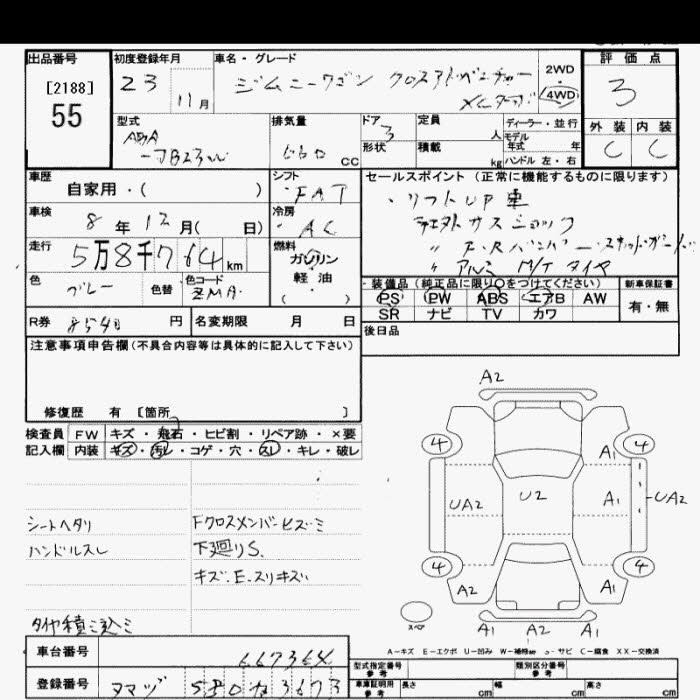 出品番号
[2188]
55
初度登録年月
23
11月
車名・グレード
ジムニーワゴン クロスアドベンチャー
2WD
4WD
評価点
3
型式
ABA
-JB23W
排気量
660
cc
ドア
3
形状
定員
人
積載
kg
ディーラー・並行
モデル
年式 年
ハンドル 左・右
外装
内装
C
C
車歴
自家用・( )
シフト
FAT
車検
8年12月( 日)
冷房
AC
走行
5万8千764km
燃料
ガソリン
軽油
色
グレー
色替
色コード
ZMA
セールスポイント(正常に機能するものに限ります)
・リフトUP車
社外サスショック
〃 F.Rバンパー・スキッドガード
〃 アルミ M/T タイヤ
装備品(純正品に限り○をつけてください)
新車保証書
PS PW ABS エアB AW
SR ナビ TV カワ
有・無
R券
8540円
名変期限
月 日
後日品
注意事項申告欄(不具合内容等は具体的に記入して下さい)
修復歴 有 [箇所 ]
検査員 FW キズ・飛石・ヒビ割・リペア跡・×要
記入欄 内装 キズ・汚レ・コゲ・穴・スレ・キレ・破レ
シートヘタリ
ハンドルスレ
Fクロスメンバーヒズミ
下廻りS.
キズ.E.スリキズ
タイヤ積ミ込ミ
A2
4
4
A1
UA2
U2
A1
UA2
4
4
A2
A1
スペア
A1
A2
A1
A-キズ E-エクボ U-凹み W-補修跡 S-サビ C-腐食 XX-交換済
車台番号
667364
登録番号
580
3673
型式指定番号
参考
類別区分番号
参考
車庫証明用
参考
長さ cm
幅 cm
高さ cm